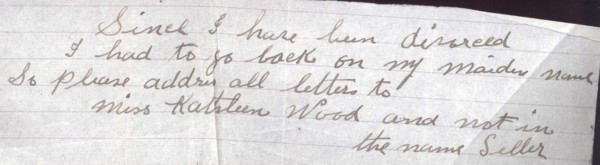 Since I have been divorced
I had to go back on my maiden name
So please address all letters to
Miss Kathleen Wood and not in
the name Seller